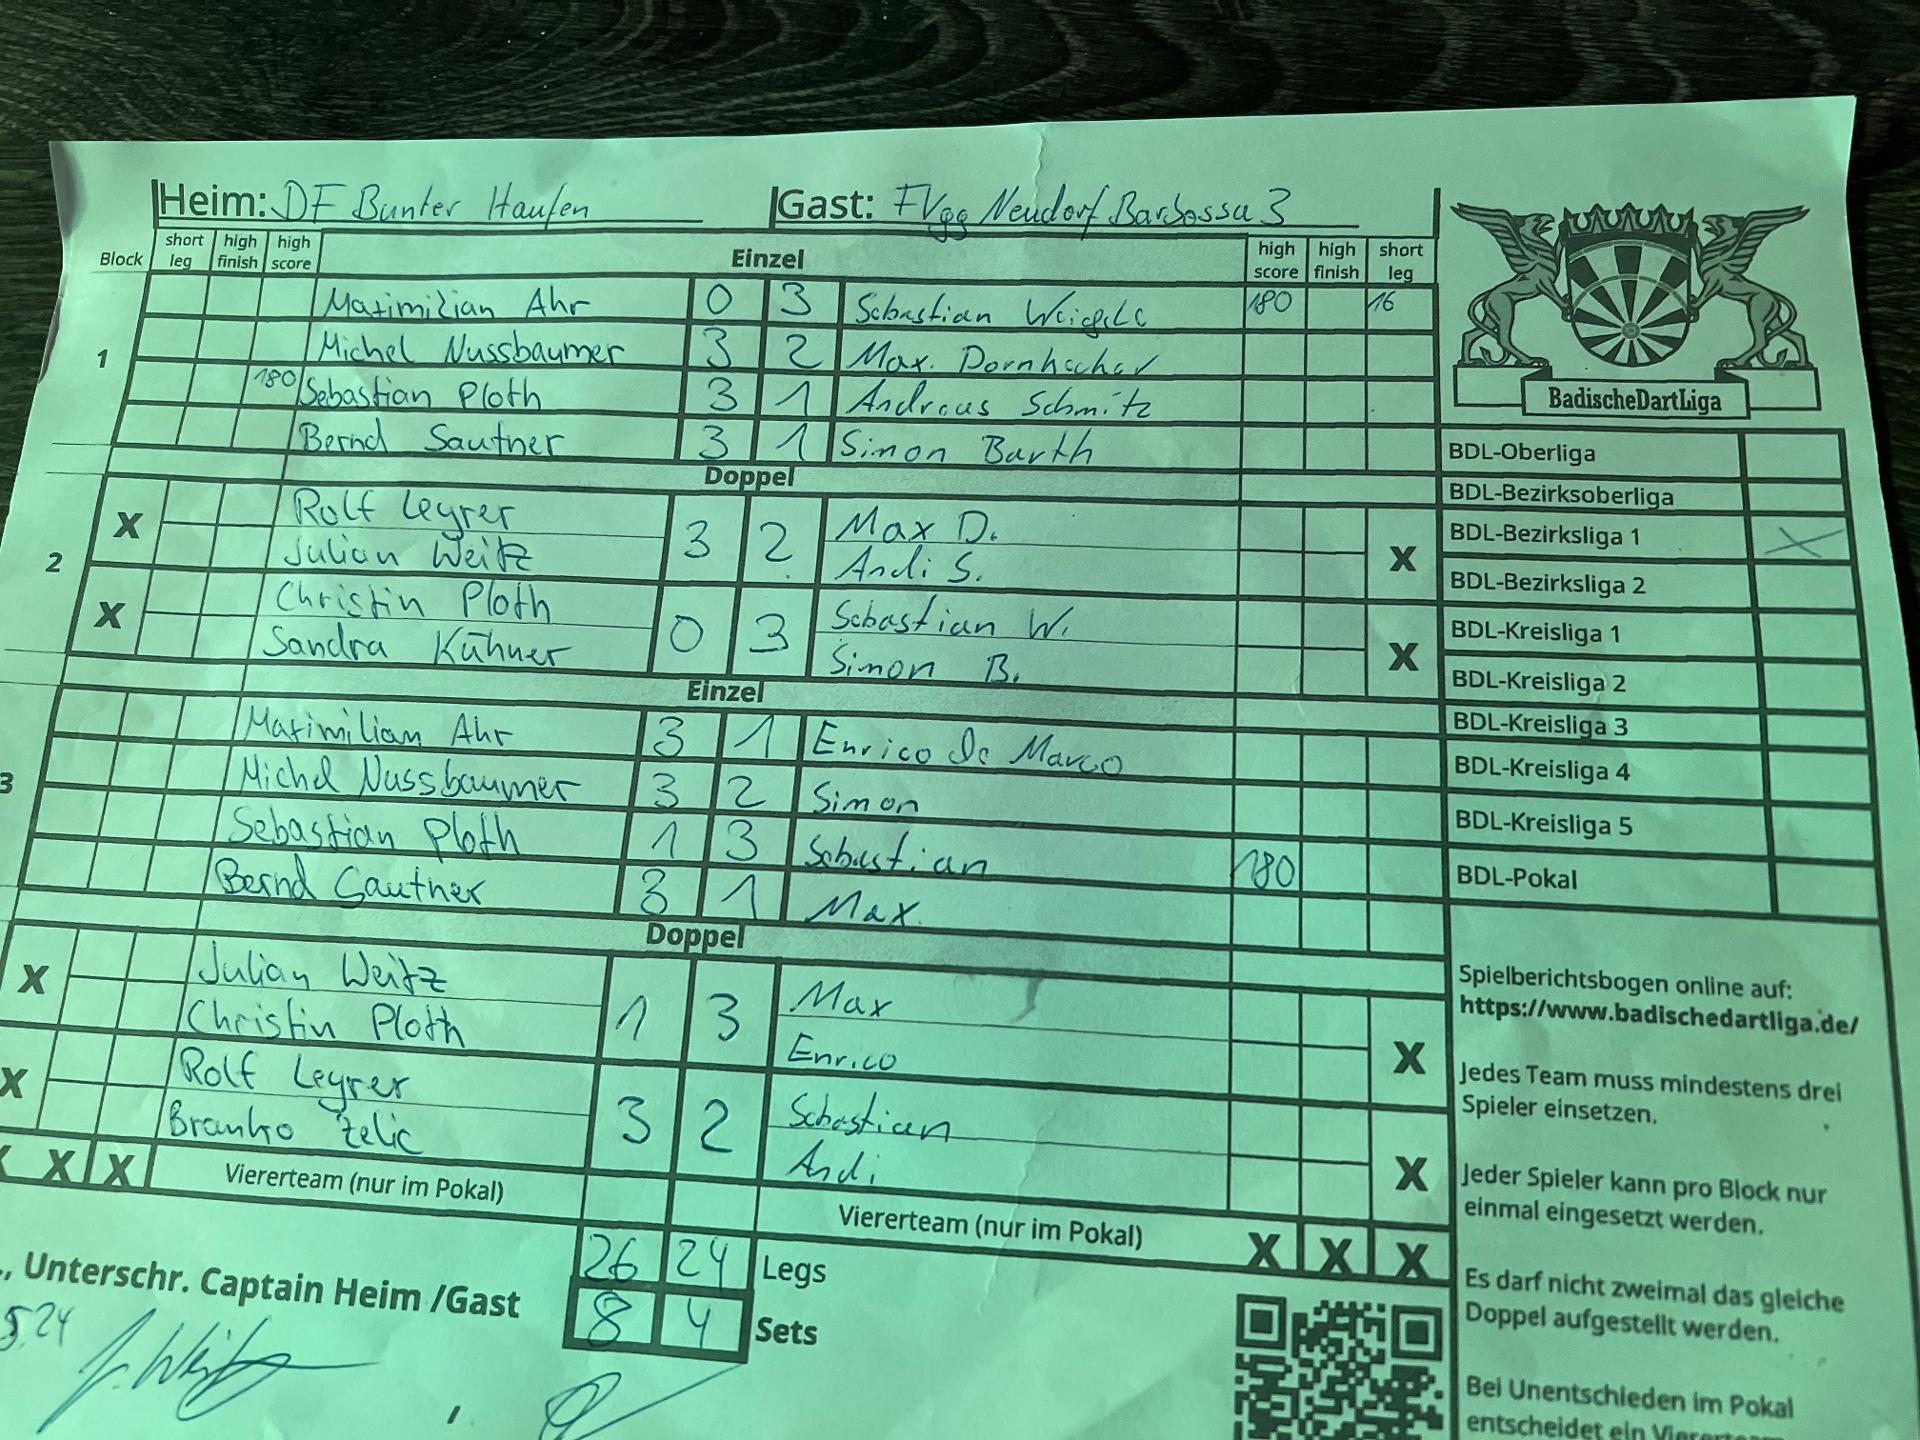 Heim: DF Bunter Haufen Gast: FVgg Neudorf Barbossa 3
Block short leg high finish high score Einzel high score high finish short leg
Maximilian Ahr 0 3 Sebastian 180 16
1 Michel Nussbaumer 3 2 Max.
180 Sebastian Ploth 3 1 Andreas Schmitz
Bernd Sautner 3 1 Simon Barth
Doppel
X Rolf Leyrer 3 2 Max D. X
Julian Weitz Andi S.
2
X Christin Ploth 0 3 Sebastian W. X
Sandra Kühner Simon B.
Einzel
Maximilian Ahr 3 1 Enrico De Marco
3 Michel Nussbaumer 3 2 Simon
Sebastian Ploth 1 3 Sebastian 180
Bernd Sautner 3 1 Max
Doppel
X Julian Weitz 1 3 Max X
Christin Ploth Enrico
X Rolf Leyrer 3 2 Sebastian X
Branko Zelic Andi
X X X Viererteam (nur im Pokal) Viererteam (nur im Pokal) X X X
26 24 Legs
8 4 Sets
., Unterschr. Captain Heim /Gast
5.24
BadischeDartLiga
BDL-Oberliga
BDL-Bezirksoberliga
BDL-Bezirksliga 1 X
BDL-Bezirksliga 2
BDL-Kreisliga 1
BDL-Kreisliga 2
BDL-Kreisliga 3
BDL-Kreisliga 4
BDL-Kreisliga 5
BDL-Pokal
Spielberichtsbogen online auf:
https://www.badischedartliga.de/
Jedes Team muss mindestens drei
Spieler einsetzen.
Jeder Spieler kann pro Block nur
einmal eingesetzt werden.
Es darf nicht zweimal das gleiche
Doppel aufgestellt werden.
Bei Unentschieden im Pokal
entscheidet ein Viererteam